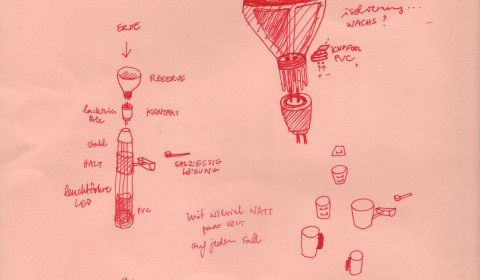 ERDE
isolierung...
WACHS?
KUPFER
PVC,
RESERVE
KONTAKT
stahl
HALT
SALZ-ESSIG
LÖSUNG
leuchtröhre
LED
PVC
mit wieviel WATT
paar VOLT
auf jeden Fall